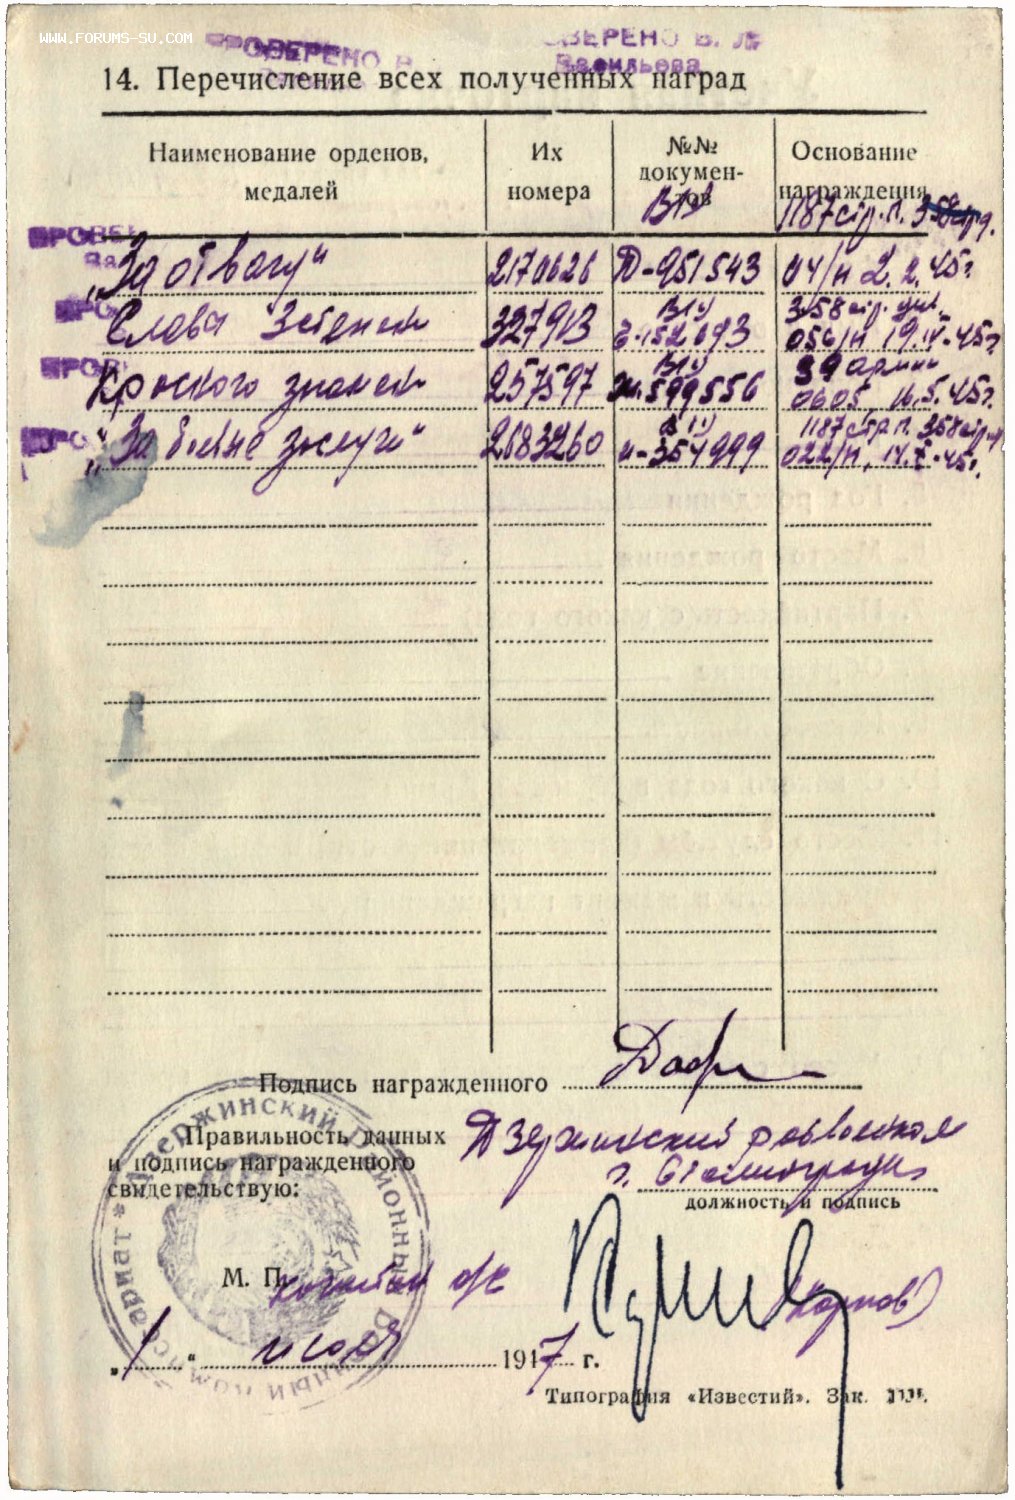 WWW.FORUMS-SU.COM
ПРОВЕРЕНО В.
ОВЕРЕНО В.
Васильева
14. Перечисление всех полученных наград
Наименование орденов, медалей
Их номера
№№ документов
Основание награждения
ВПУ 1187 стр. п. 358 стр. д.
ПРОВЕ
„За отвагу“ 2170626 Д-951543 04/н 2.2.45г.
ПРО
Слава 3 степени 327913 152693 358 стр. див. 056/н 19.IV-45г.
ПРОВ
Красного знамени 257597 599556 39 армии 0605 16.5.45г.
ПРО
„За боевые заслуги“ 2683260 и-354999 1187 стр. п. 358 стр. д. 022/н
Подпись награжденного
Правильность данных
и подпись награжденного
свидетельствую:
Дзержинский райвоенком
г. Сталинграда
должность и подпись
М. П. капитан а/с
(Карпов)
„1“ июля 1947 г.
Дзержинский районный военный комиссариат
Типография «Известий». Зак.